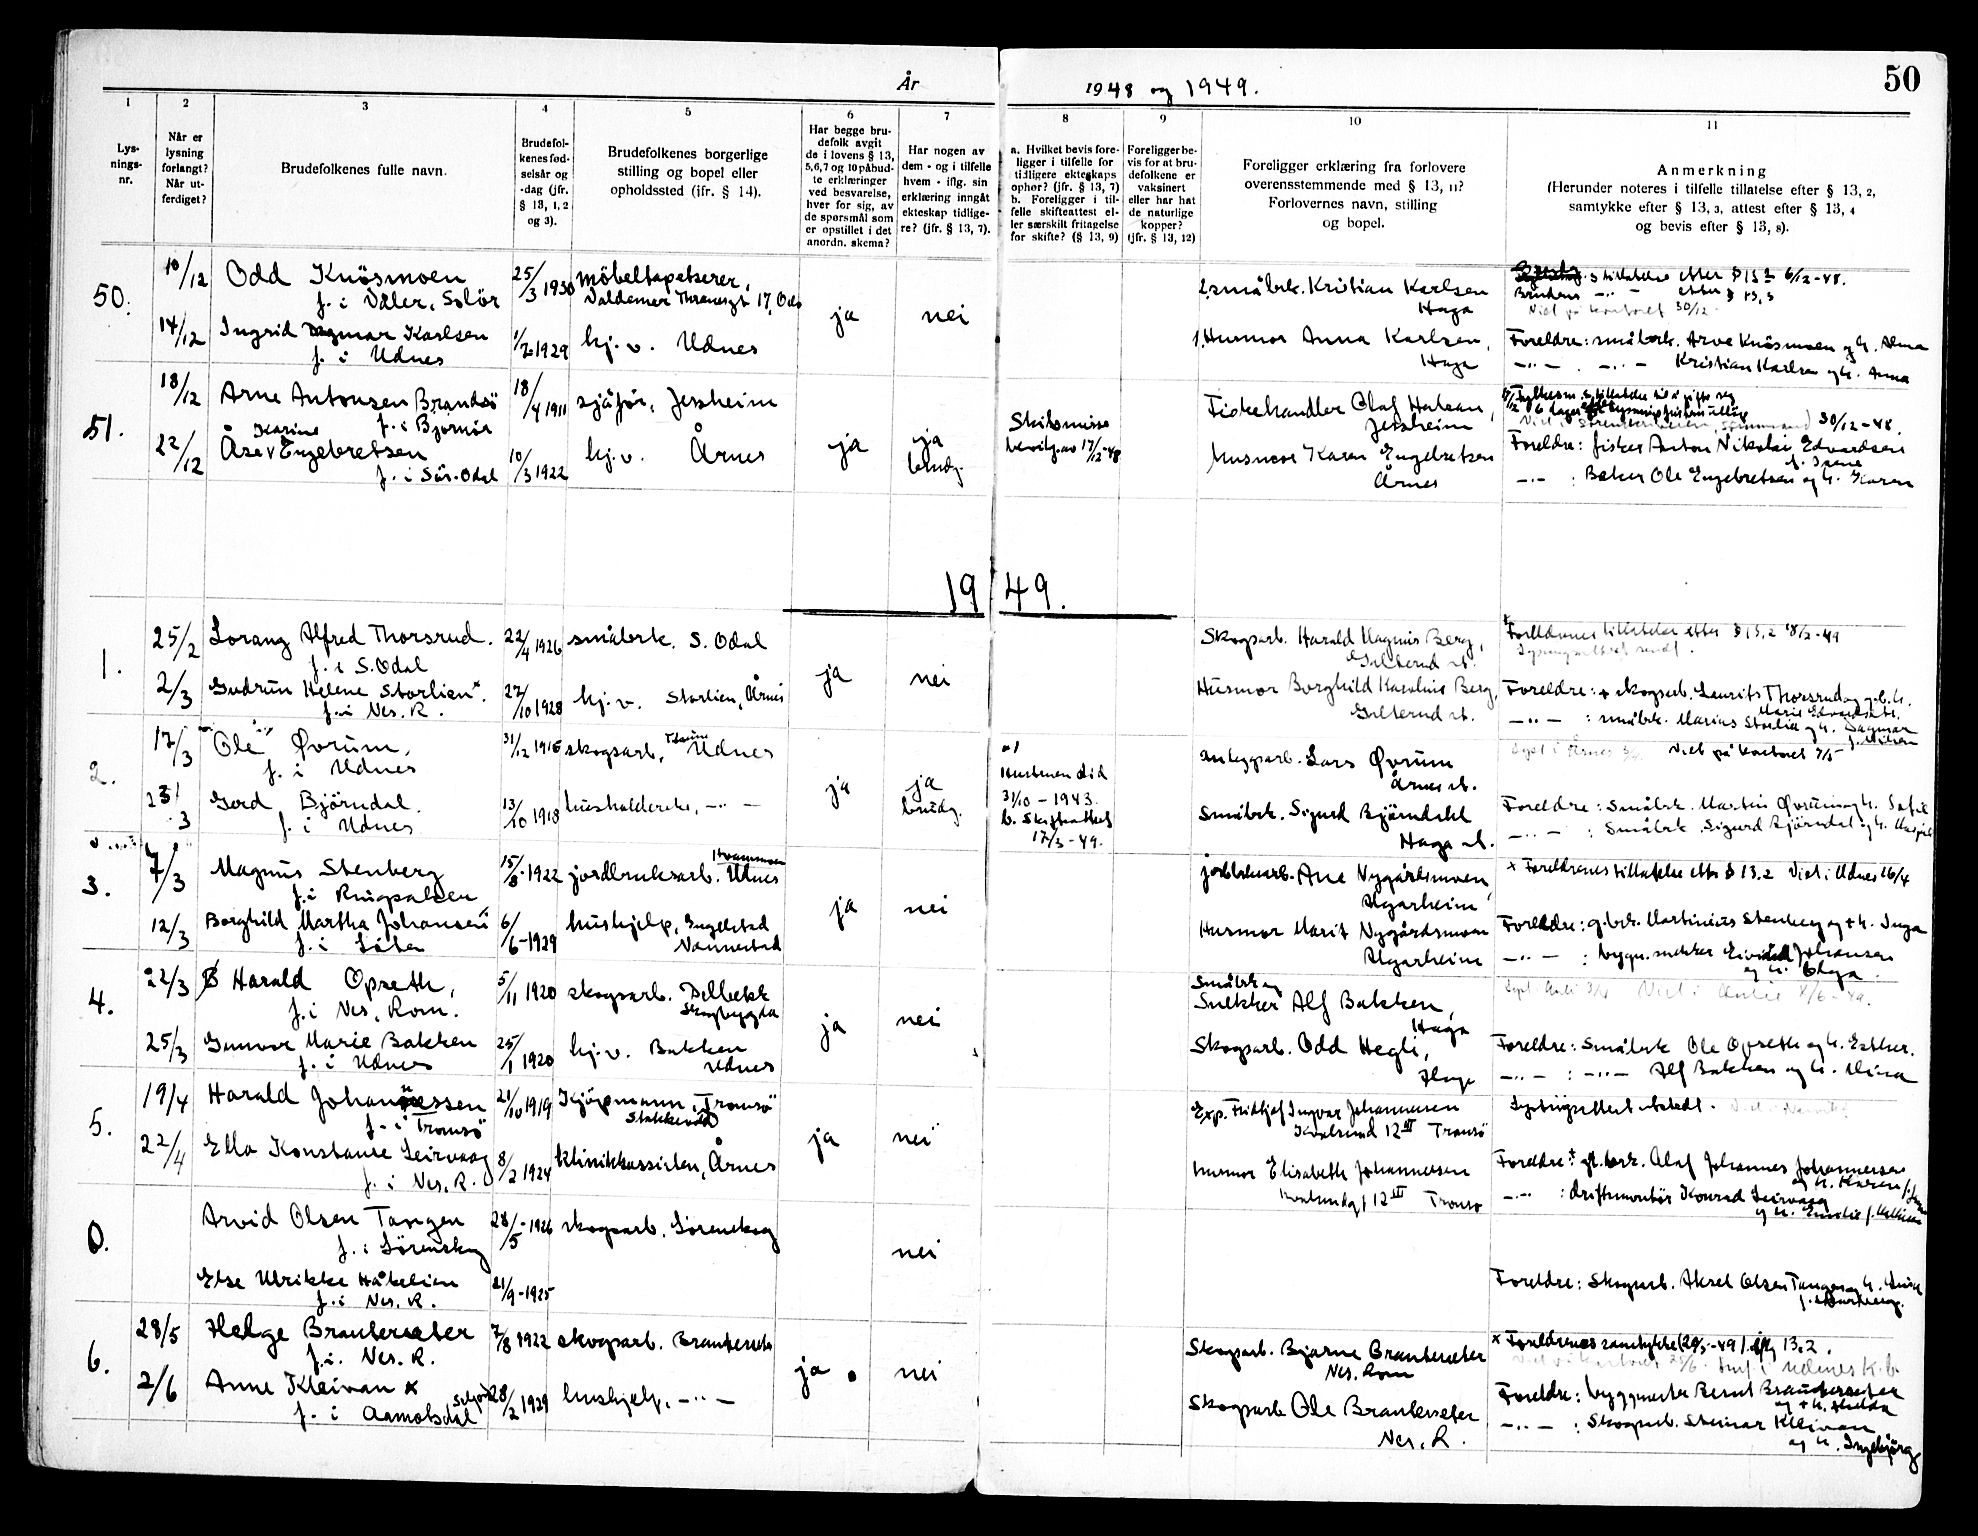 År 1948 og 1949.
50
1
Lys-
nings-
nr.
2
Når er
lysning
forlangt?
Når ut-
ferdiget?
3
Brudefolkenes fulle navn.
4
Brudefol-
kenes fød-
selsår og
-dag (jfr.
§ 13, 1, 2
og 3).
5
Brudefolkenes borgerlige
stilling og bopel eller
opholdssted (jfr. § 14).
6
Har begge bru-
defolk avgit
de i lovens § 13,
5,6,7 og 10 påbud-
te erklæringer
ved besvarelse,
hver for sig, av
de spørsmål som
er opstillet i det
anordn. skema?
7
Har nogen av
dem - og i tilfelle
hvem - iflg. sin
erklæring inngåt
ekteskap tidlige-
re? (jfr. § 13, 7).
8
a. Hvilket bevis fore-
ligger i tilfelle for
tidligere ekteskaps
ophør? (jfr. § 13, 7)
b. Foreligger i til-
felle skifteattest el-
ler særskilt fritagelse
for skifte? (§ 13, 9)
9
Foreligger be-
vis for at bru-
defolkene er
vaksinert
eller har hat
de naturlige
kopper?
(jfr. § 13, 12)
10
Foreligger erklæring fra forlovere
overensstemmende med § 13, 11?
Forlovernes navn, stilling
og bopel.
11
Anmerkning
(Herunder noteres i tilfelle tillatelse efter § 13, 2,
samtykke efter § 13, 3, attest efter § 13, 4
og bevis efter § 13, 8).
50.
10/12 Odd Knösmoen 25/3 1930 møbeltapetserer,
f. i Våler, Solör Valdemar Thranesgt 17, Oslo
14/12 Ingrid Dagmar Karlsen 1929 hj. v. Udnes
f. i Udnes
ja nei
2. småbrk. Kristian Karlsen
Haga
1. Husmor Anna Karlsen,
Haga
tillatelse efter § 13 2 6/12-48.
Brudens -"- efter § 13, 3
Viet på kontoret 30/12.
Foreldre: småbrk. Arve Knösmoen og h. Alma
-"- . -"- Kristian Karlsen og h. Anna
51.
18/12 Arne Antonsen Brandsö 18/4 1911 sjåför, Jessheim
f. i Bjarnöa
22/12 Åse Karine Engebretsen 10/3 1922 hj. v. Årnes
f. i Sör-Odal
ja ja
brudg.
Skilsmisse
bevilg. av 17/12-48
Fiskehandler Olaf
Jessheim
Husmor Karen Engebretsen
Årnes
30/12-48.
Foreldre: fisker Anton Nikolai Edvardsen
-"- : Baker Ole Engebretsen og h. Karen
1949.
1.
25/2 Lorang Alfred Thorsrud. 22/4 1926 småbrk. S. Odal
f. i S. Odal
2/3 Gudrun Helene Storlien x 27/10 1928 hj. v. Storlien, Årnes
f. i Nes. R.
ja nei
Skogsarb. Harald Magnus Berg,
st.
Husmor Borghild Karoline Berg,
st.
Foreldrenes tillatelse etter § 13.2 18/2-49
Foreldre: + skogsarb. Laurits Thorsrud og h.
-"- : småbrk. Marius Storlien og h. Dagmar
2.
17/3 Ole Øvrum, 31/12 1915 skogsarb, Udnes
f. i Udnes
23/3 Gerd Björndal. 13/10 1918 husholderske, -"-
f. i Udnes
ja ja
brudg.
a)
Hustruen död
31/10 - 1943.
b. Skifteattest
17/3-49.
anleggsarb. Lars Øvrum
Årnes st.
Småbrk. Sigurd Björndal
Haga st.
Viet på kontoret 7/5
Foreldre: Småbrk. Martin Øvrum og h. Sofie
-"- : Småbrk Sigurd Björndal og h.
3.
7/3 Magnus Stenberg 15/8-1922 jordbruksarb. Udnes
f. i Ringsaker
12/3 Borghild Martha Johansen 6/6-1929 hushjelp, Engelstad
f. i Nannestad
ja nei
jordbrukarb. Arne Nygårdsmoen,
Algarheim
Husmor Marit Nygårdsmoen
Algarheim
x Foreldrenes tillatelse etter § 13.2 Viet i Udnes 16/4
Foreldre: g.brk. Martinius Stenberg og + h. Inga
-"- : bygn. snekker Eivind Johansen
og h. Olga.
4.
22/3 Harald Opseth, 5/11 1920 skogsarb. Delbekk
f. i Nes, Rom. Skogbygda
25/3 Gunvor Marie Bakken 25/1 1920 hj. v. Bakken
f. i Udnes Udnes
ja nei
Småbrk og
Snekker Alf Bakken,
Haga
Skogsarb. Odd Hegli,
Haga
Foreldre: Småbrk Ole Opseth og h. Esther.
-"- : -"- Alf Bakken og h. Mina
5.
19/4 Harald Johannessen 21/10 1919 Kjöpmann, Tromsö
f. i Tromsö
22/4 Ella Konstanse Leirvaag 8/2 1924 klinikkassisten, Årnes
f. i Nes. R.
ja nei
Exp. Fridtjof Ingvar Johannessen
Kvalsund 12 Tromsö
Husmor Elisabeth Johannessen
12 Tromsö
Lysningsattest utstedt.
Foreldre: Olaf Johannes Johannessen
-"- : driftsmontör Konrad Leirvaag
0.
Arvid Olsen Tangen 28/5-1926 skogsarb. Lörenskog
f. i Lörenskog
nei
Else Ulrikke Håkelien 21/9-1925
f. i Nes. R.
Foreldre: Skogsarb. Aksel Olsen Tangen og h.
6.
28/5 Helge Brauterseter 7/8 1922 skogsarb. Brauterseter
f. i. Nes. R.
2/6 Anne Kleivan x 28/2 1929 hushjelp, -"-
f. i Aamotsdal
ja nei
Skogsarb. Bjarne Brauterseter
Nes. Rom
Skogsarb Ole Brauterseter
Nes. R.
x Foreldrenes samtykke 13.2.
Foreldre: byggmester Bernt Brauterseter
og + h.
-"- : Skogsarb. Steinar Kleivan
og h. Ingebjörg